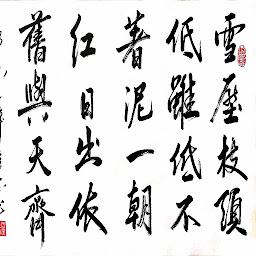 雪壓枝頭
低雖低不
著泥一朝
紅日出依
舊與天齊